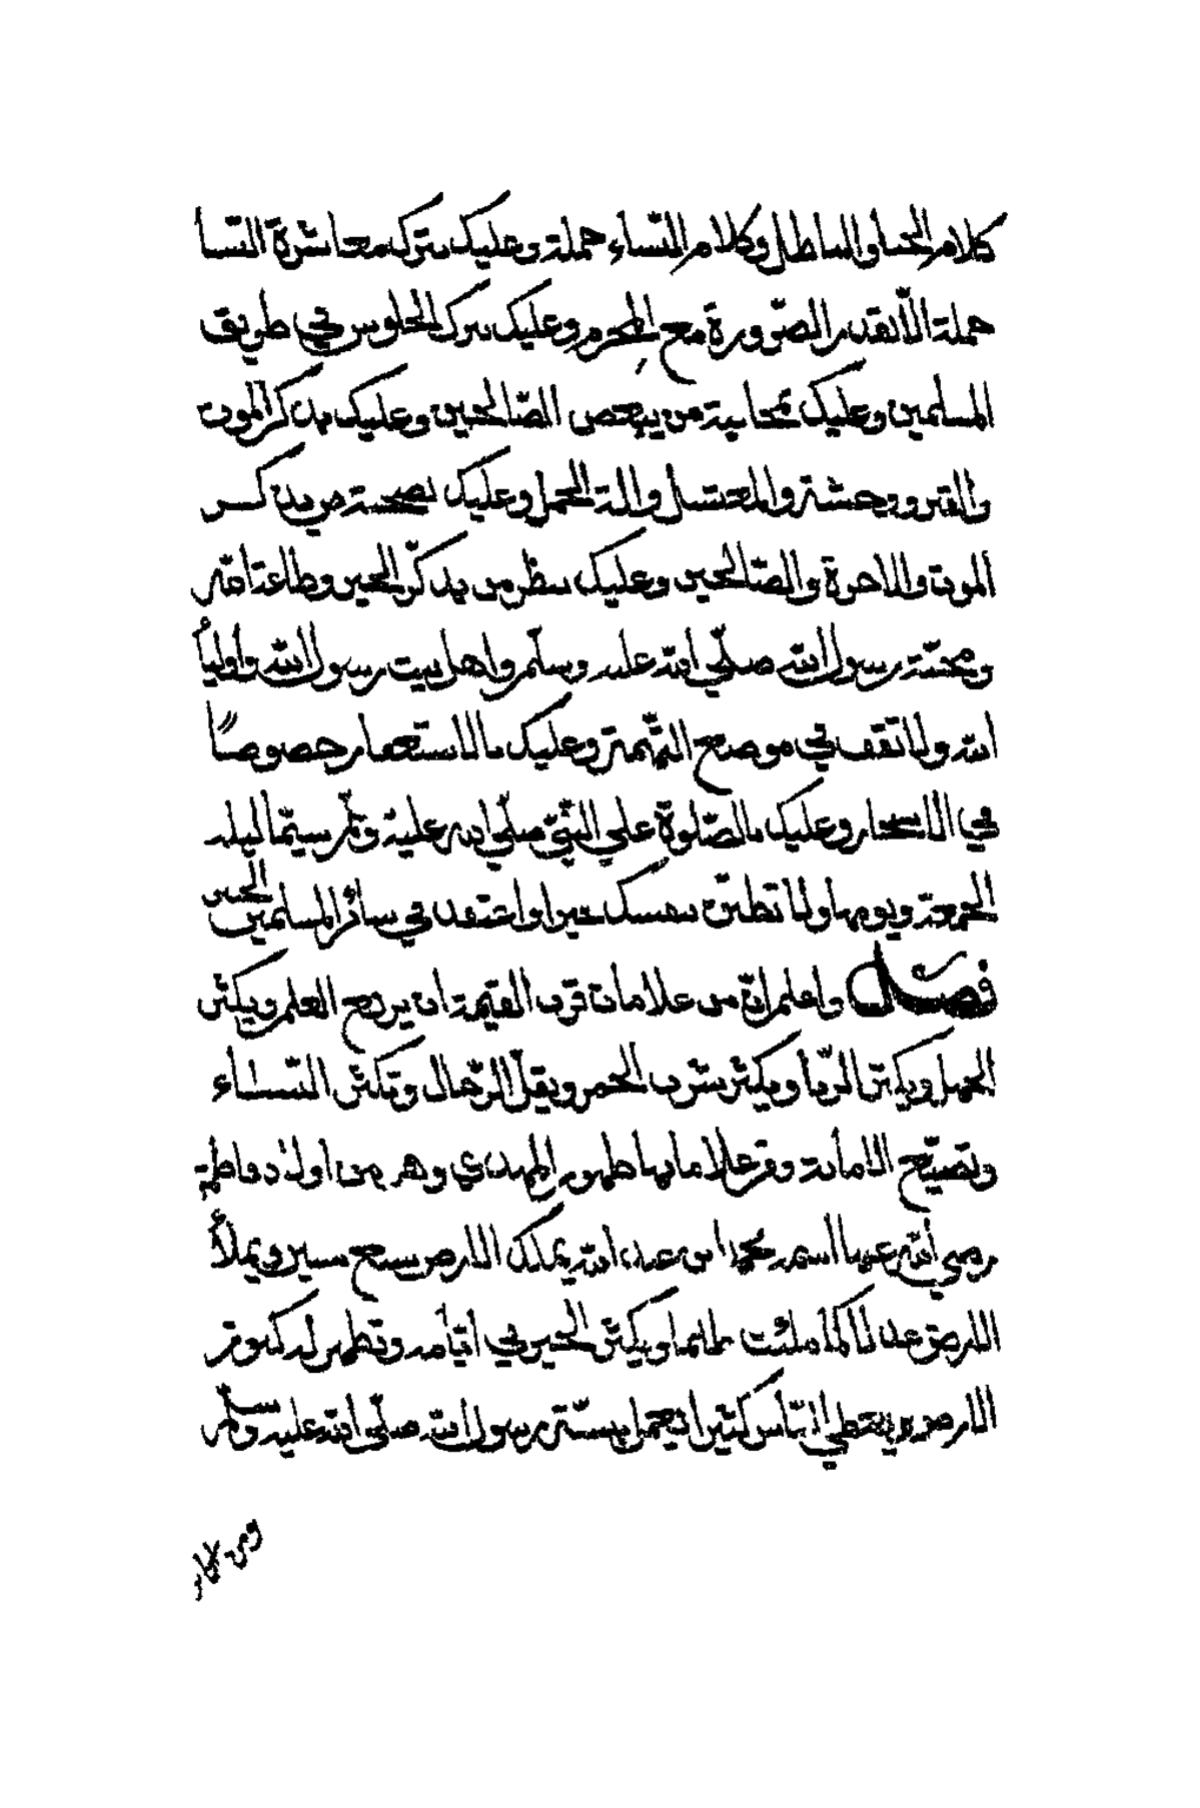 كلام الخنا والباطل وكلام النساء جملة وعليك بترك معاشرة النسا
جملة الّا بقدر الضّرورة مع المحرم وعليك بترك الجلوس في طريق
المسلمين وعليك بمجانبة من يبغض الصّالحين وعليك بذكر الموت
والقبر ووحشته والمغتسل والة الحمل وعليك بصحبة من يذكر
الموت والاخرة والصّالحين وعليك بنظر من يذكّر الخير وطاعة الله
ومحبّة رسول الله صلّي الله عليه وسلّم واهل بيت رسول الله وأوليأ
الله ولا تقف في موضع التّهمة وعليك بالاستغفار خصوصًا
في الاسحار وعليك بالصّلوة علي النّبيّ صلّي الله عليه وسلّم سيّما ليلة
الجمعة ويومها ولا تظنّ بنفسك خيرا واعتقد في سائر المسلمين الخير
فصل واعلم انّ من علامات قرب القيمة ان يرفع العلم ويكثر
الجهل ويكثر الرّبا ويكثر شرب الخمر ويقلّ الرّجال وتكثر النّساء
وتضيّع الامانة ومن علاماتها ظهور المهدي وهو من اولاد فاطمة
رضي الله عنها اسمه محمد ابن عبد الله يملك الارض سبع سنين ويملأ
الارض عدلا كما ملئت ظلما ويكثر الخير في أيّامه وتظهر له كنوز
الارض ويعطي النّاس كثيرا ويعمل بسنّة رسول الله صلّي الله عليه وسلّم